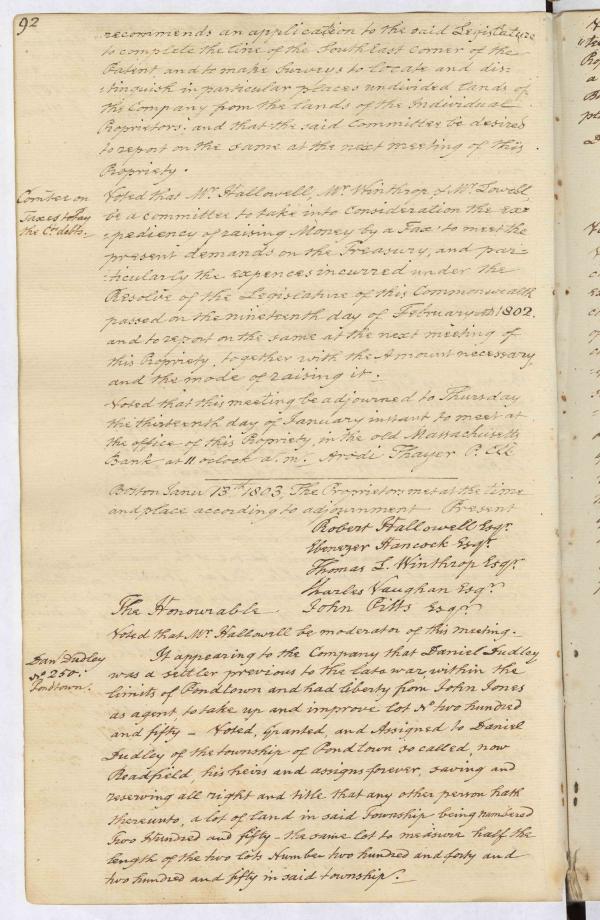 92
recommends an application to the said Legislature
to complete the line of the South East corner of the
Patent and to make surveys to locate and dis=
tinguish in particular places undivided lands of
this Company from the lands of the Individual
Proprietors. and that the said Committee be desired
to report on the same at the next meeting of this
Propriety.
Comtee on
Taxes to Pay
the Co. debts.
Voted that Mr. Hallowell, Mr. Winthrop, & Mr. Lowell,
be a committee to take into consideration the ex=
=pediency of raising Money by a Tax: to meet the
present demands on the Treasury, and par=
=ticularly the expences incurred under the
Resolve of the Legislature of this Commonwealth
passed on the nineteenth day of February AD 1802.
and to report on the same at the next meeting of
this Propriety, together with the Amount necessary
and the mode of raising it.
Voted that this meeting be adjourned to Thursday
the thirteenth day of January instant to meet at
the office of this Propriety, in the old Massachusetts
Bank at 11 oclock a.m. Arodi Thayer P. Clk
Boston Janr. 13th 1803. The Proprietors met at the time
and place according to adjournment Present
Robert Hallowell Esqr.
Ebenezer Hancock Esqr.
Thomas L. Winthrop Esqr.
Charles Vaughan Esqr.
The Honourable John Pitts Esqr.
Voted that Mr. Hallowill be moderator of this meeting.
Danl. Dudley
No. 250.
Pondtown.
It appearing to the Company that Daniel Dudley
was a settler previous to the late war, within the
limits of Pondtown and had liberty from John Jones
as agent, to take up and improve lot No two hundred
and fifty - Voted, Granted, and Assigned to Daniel
Dudley of the township of Pondtown so called, now
Readfield, his heirs and assigns forever, saving and
reserving all right and title that any other person hath
thereunto, a lot of land in said Township being numbered
Two Hundred and fifty - the same lot to measure half the
length of the two lots Number two hundred and forty and
two hundred and fifty in said township.